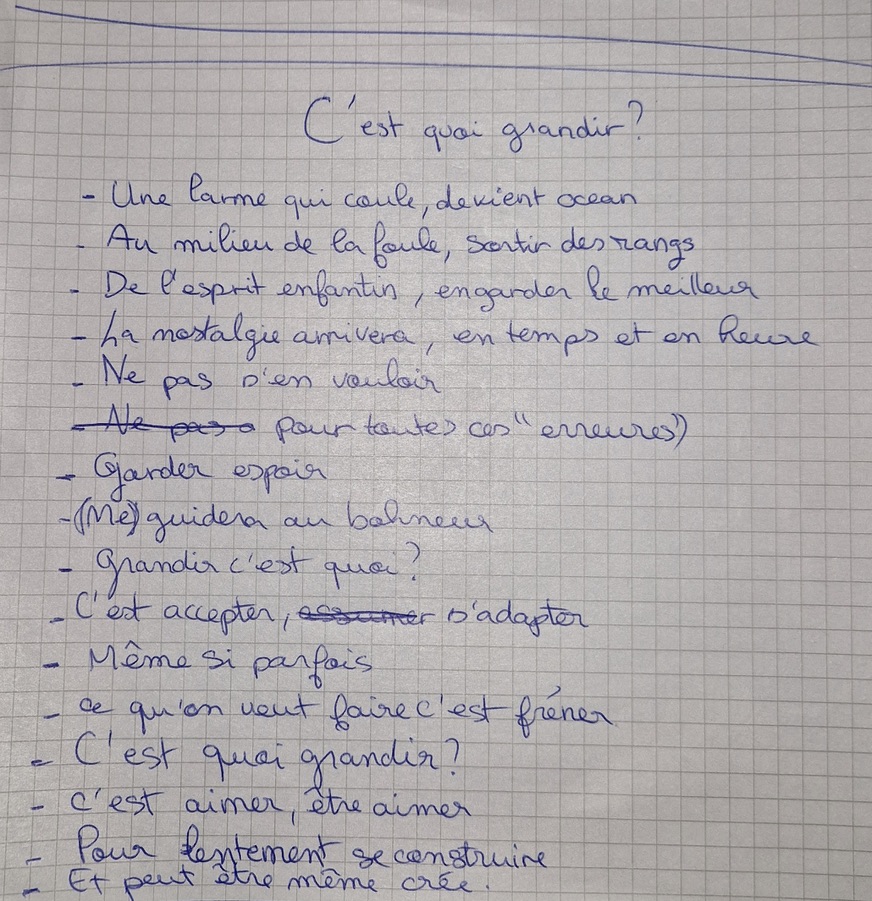 C'est quoi grandir?
- Une larme qui coule, devient ocean
- Au milieu de la foule, sortir des rangs
- De l'esprit enfantin, en garder le meilleur
- La nostalgie arrivera, en temps et en heure
- Ne pas s'en vouloir
- Ne pas s pour toutes ces "erreures")
- Garder espoir
- (Me) guidera au bohneur
- Grandir c'est quoi?
- C'est accepter, assumer s'adapter
- Même si parfois
- ce qu'on veut faire c'est fréner
- C'est quoi grandir?
- C'est aimer, être aimer
- Pour lentement se construire
- Et peut être même crée.